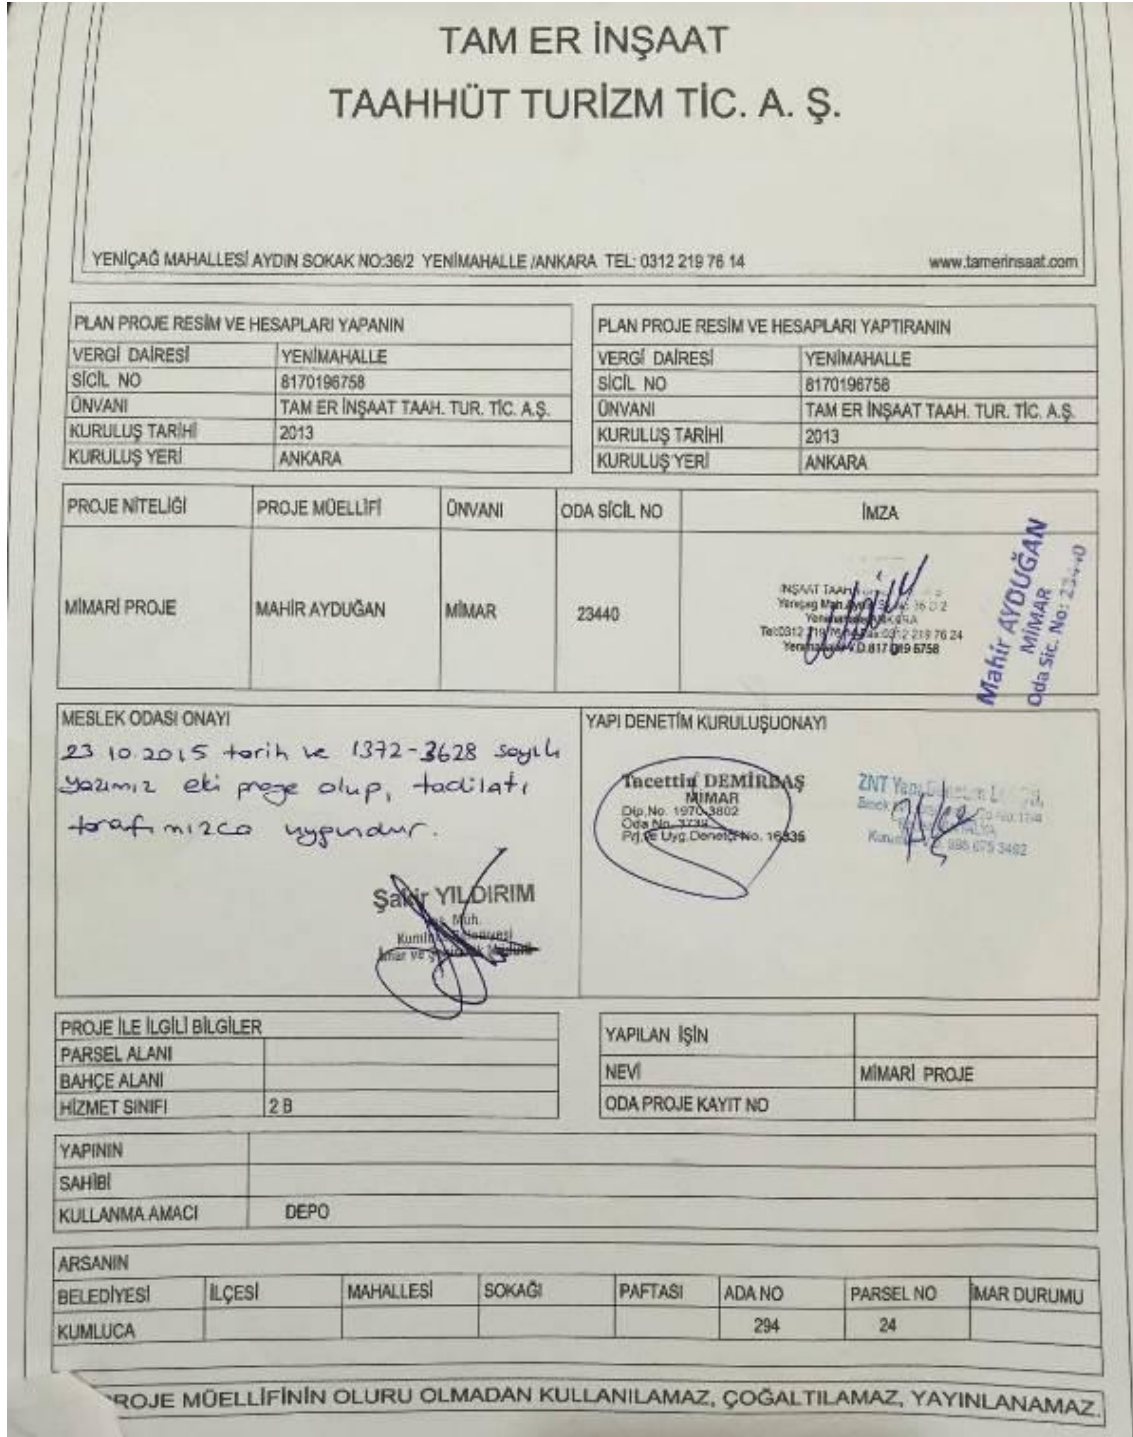 TAM ER İNŞAAT
TAAHHÜT TURİZM TİC. A. Ş.
YENİÇAĞ MAHALLESİ AYDIN SOKAK NO:36/2 YENİMAHALLE /ANKARA TEL: 0312 219 76 14
www.tamerinsaat.com
PLAN PROJE RESİM VE HESAPLARI YAPANIN
VERGİ DAİRESİ YENİMAHALLE
SİCİL NO 8170196758
ÜNVANI TAM ER İNŞAAT TAAH. TUR. TİC. A.Ş.
KURULUŞ TARİHİ 2013
KURULUŞ YERİ ANKARA
PLAN PROJE RESİM VE HESAPLARI YAPTIRANIN
VERGİ DAİRESİ YENİMAHALLE
SİCİL NO 8170196758
ÜNVANI TAM ER İNŞAAT TAAH. TUR. TİC. A.Ş.
KURULUŞ TARİHİ 2013
KURULUŞ YERİ ANKARA
PROJE NİTELİĞİ PROJE MÜELLİFİ ÜNVANI ODA SİCİL NO İMZA
MİMARİ PROJE MAHİR AYDUĞAN MİMAR 23440
İNŞAAT TAAH
Yeniçağ Mah.
219 76 24
Mahir AYDUĞAN
MİMAR
Oda Sic. No: 23440
MESLEK ODASI ONAYI
23.10.2015 tarih ve 1372-3628 sayılı
yazımız eki proje olup, tadilatı
tarafımızca uygundur.
Şakir YILDIRIM
Müh.
İmar ve
YAPI DENETİM KURULUŞUONAYI
Tacettin DEMİRBAŞ
MİMAR
Dip.No. 1970-3802
Oda No. 3739
Prj.ve Uyg.Denetçi No. 16335
ZNT Yapı Denetim
PROJE İLE İLGİLİ BİLGİLER
PARSEL ALANI
BAHÇE ALANI
HİZMET SINIFI 2 B
YAPILAN İŞİN
NEVİ MİMARİ PROJE
ODA PROJE KAYIT NO
YAPININ
SAHİBİ
KULLANMA AMACI DEPO
ARSANIN
BELEDİYESİ İLÇESİ MAHALLESİ SOKAĞI PAFTASI ADA NO PARSEL NO İMAR DURUMU
KUMLUCA 294 24
PROJE MÜELLİFİNİN OLURU OLMADAN KULLANILAMAZ, ÇOĞALTILAMAZ, YAYINLANAMAZ.